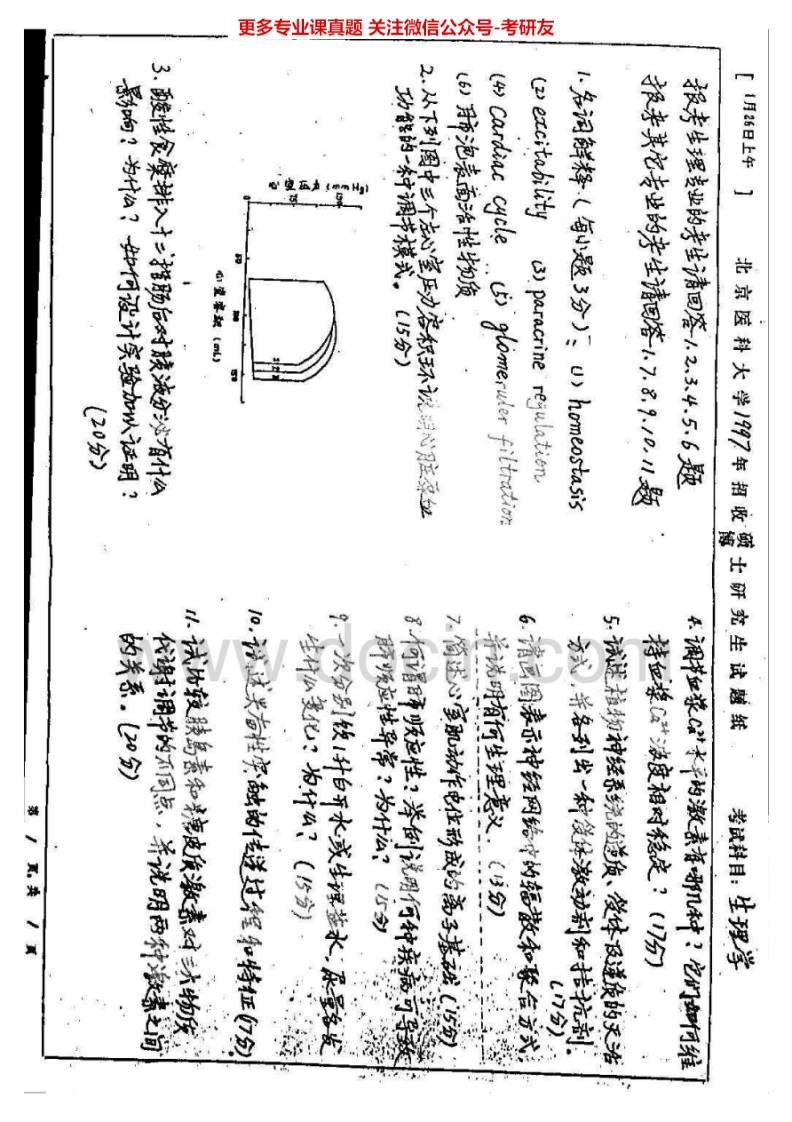 更多专业课真题 关注微信公众号-考研友
[ 1月26日上午 ] 北京医科大学1997年招收硕博士研究生试题纸 考试科目: 生理学
报考生理专业的考生请回答1.2.3.4.5.6题
报考其它专业的考生请回答1.7.8.9.10.11题
1. 名词解释(每小题3分): (1) homeostasis
(2) excitability (3) paracrine regulation
(4) cardiac cycle (5) glomeruler filtration
(6) 肺泡表面活性物质
2. 从下列图中三个左心室压力容积环说明心脏泵血
功能的一种调节模式。(15分)
心室压力 (mmHg)
心室容积 (mL)
3. 酸性食糜排入十二指肠后对胰液分泌有什么
影响? 为什么? 如何设计实验加以证明?
(20分)
4. 调节血浆Ca²⁺水平的激素有哪几种? 它们如何维
持血浆Ca²⁺浓度相对稳定? (17分)
5. 试述植物神经系统的递质、受体及递质的灭活
方式, 并各列出一种受体激动剂和拮抗剂。
(17分)
6. 请画图表示神经网络中的辐散和聚合方式,
并说明有何生理意义。(13分)
7. 简述心室肌动作电位形成的离子基础(15分)
8. 何谓肺顺应性? 举例说明何种疾病可导致
肺顺应性异常? 为什么? (15分)
9. 一次分别饮1升白开水或生理盐水, 尿量各发
生什么变化? 为什么? (15分)
10. 试述兴奋性突触的传递过程和特征(17分)
11. 试比较胰岛素和糖皮质激素对三大物质
代谢调节的不同点, 并说明两种激素之间
的关系。(20分)
第 1 页, 共 1 页
www.docin.com